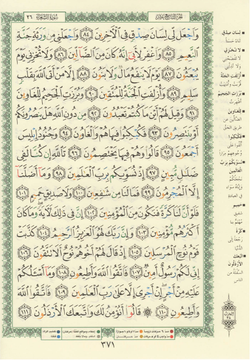 وَاجْعَل لِّي لِسَانَ صِدْقٍ فِي الْآخِرِينَ ٨٤ وَاجْعَلْنِي مِن وَرَثَةِ جَنَّةِ
النَّعِيمِ ٨٥ وَاغْفِرْ لِأَبِي إِنَّهُ كَانَ مِنَ الضَّالِّينَ ٨٦ وَلَا تُخْزِنِي يَوْمَ
يُبْعَثُونَ ٨٧ يَوْمَ لَا يَنفَعُ مَالٌ وَلَا بَنُونَ ٨٨ إِلَّا مَنْ أَتَى اللَّهَ بِقَلْبٍ
سَلِيمٍ ٨٩ وَأُزْلِفَتِ الْجَنَّةُ لِلْمُتَّقِينَ ٩٠ وَبُرِّزَتِ الْجَحِيمُ لِلْغَاوِينَ
٩١ وَقِيلَ لَهُمْ أَيْنَ مَا كُنتُمْ تَعْبُدُونَ ٩٢ مِن دُونِ اللَّهِ هَلْ يَنصُرُونَكُمْ
أَوْ يَنتَصِرُونَ ٩٣ فَكُبْكِبُوا فِيهَا هُمْ وَالْغَاوُونَ ٩٤ وَجُنُودُ إِبْلِيسَ
أَجْمَعُونَ ٩٥ قَالُوا وَهُمْ فِيهَا يَخْتَصِمُونَ ٩٦ تَاللَّهِ إِن كُنَّا لَفِي
ضَلَالٍ مُّبِينٍ ٩٧ إِذْ نُسَوِّيكُم بِرَبِّ الْعَالَمِينَ ٩٨ وَمَا أَضَلَّنَا
إِلَّا الْمُجْرِمُونَ ٩٩ فَمَا لَنَا مِن شَافِعِينَ ١٠٠ وَلَا صَدِيقٍ حَمِيمٍ ١٠١
فَلَوْ أَنَّ لَنَا كَرَّةً فَنَكُونَ مِنَ الْمُؤْمِنِينَ ١٠٢ إِنَّ فِي ذَٰلِكَ لَآيَةً وَمَا كَانَ
أَكْثَرُهُم مُّؤْمِنِينَ ١٠٣ وَإِنَّ رَبَّكَ لَهُوَ الْعَزِيزُ الرَّحِيمُ ١٠٤ كَذَّبَتْ
قَوْمُ نُوحٍ الْمُرْسَلِينَ ١٠٥ إِذْ قَالَ لَهُمْ أَخُوهُمْ نُوحٌ أَلَا تَتَّقُونَ ١٠٦
إِنِّي لَكُمْ رَسُولٌ أَمِينٌ ١٠٧ فَاتَّقُوا اللَّهَ وَأَطِيعُونِ ١٠٨ وَمَا أَسْأَلُكُمْ
عَلَيْهِ مِنْ أَجْرٍ إِنْ أَجْرِيَ إِلَّا عَلَىٰ رَبِّ الْعَالَمِينَ ١٠٩ فَاتَّقُوا اللَّهَ
وَأَطِيعُونِ ١١٠ قَالُوا أَنُؤْمِنُ لَكَ وَاتَّبَعَكَ الْأَرْذَلُونَ ١١١
٣٧١